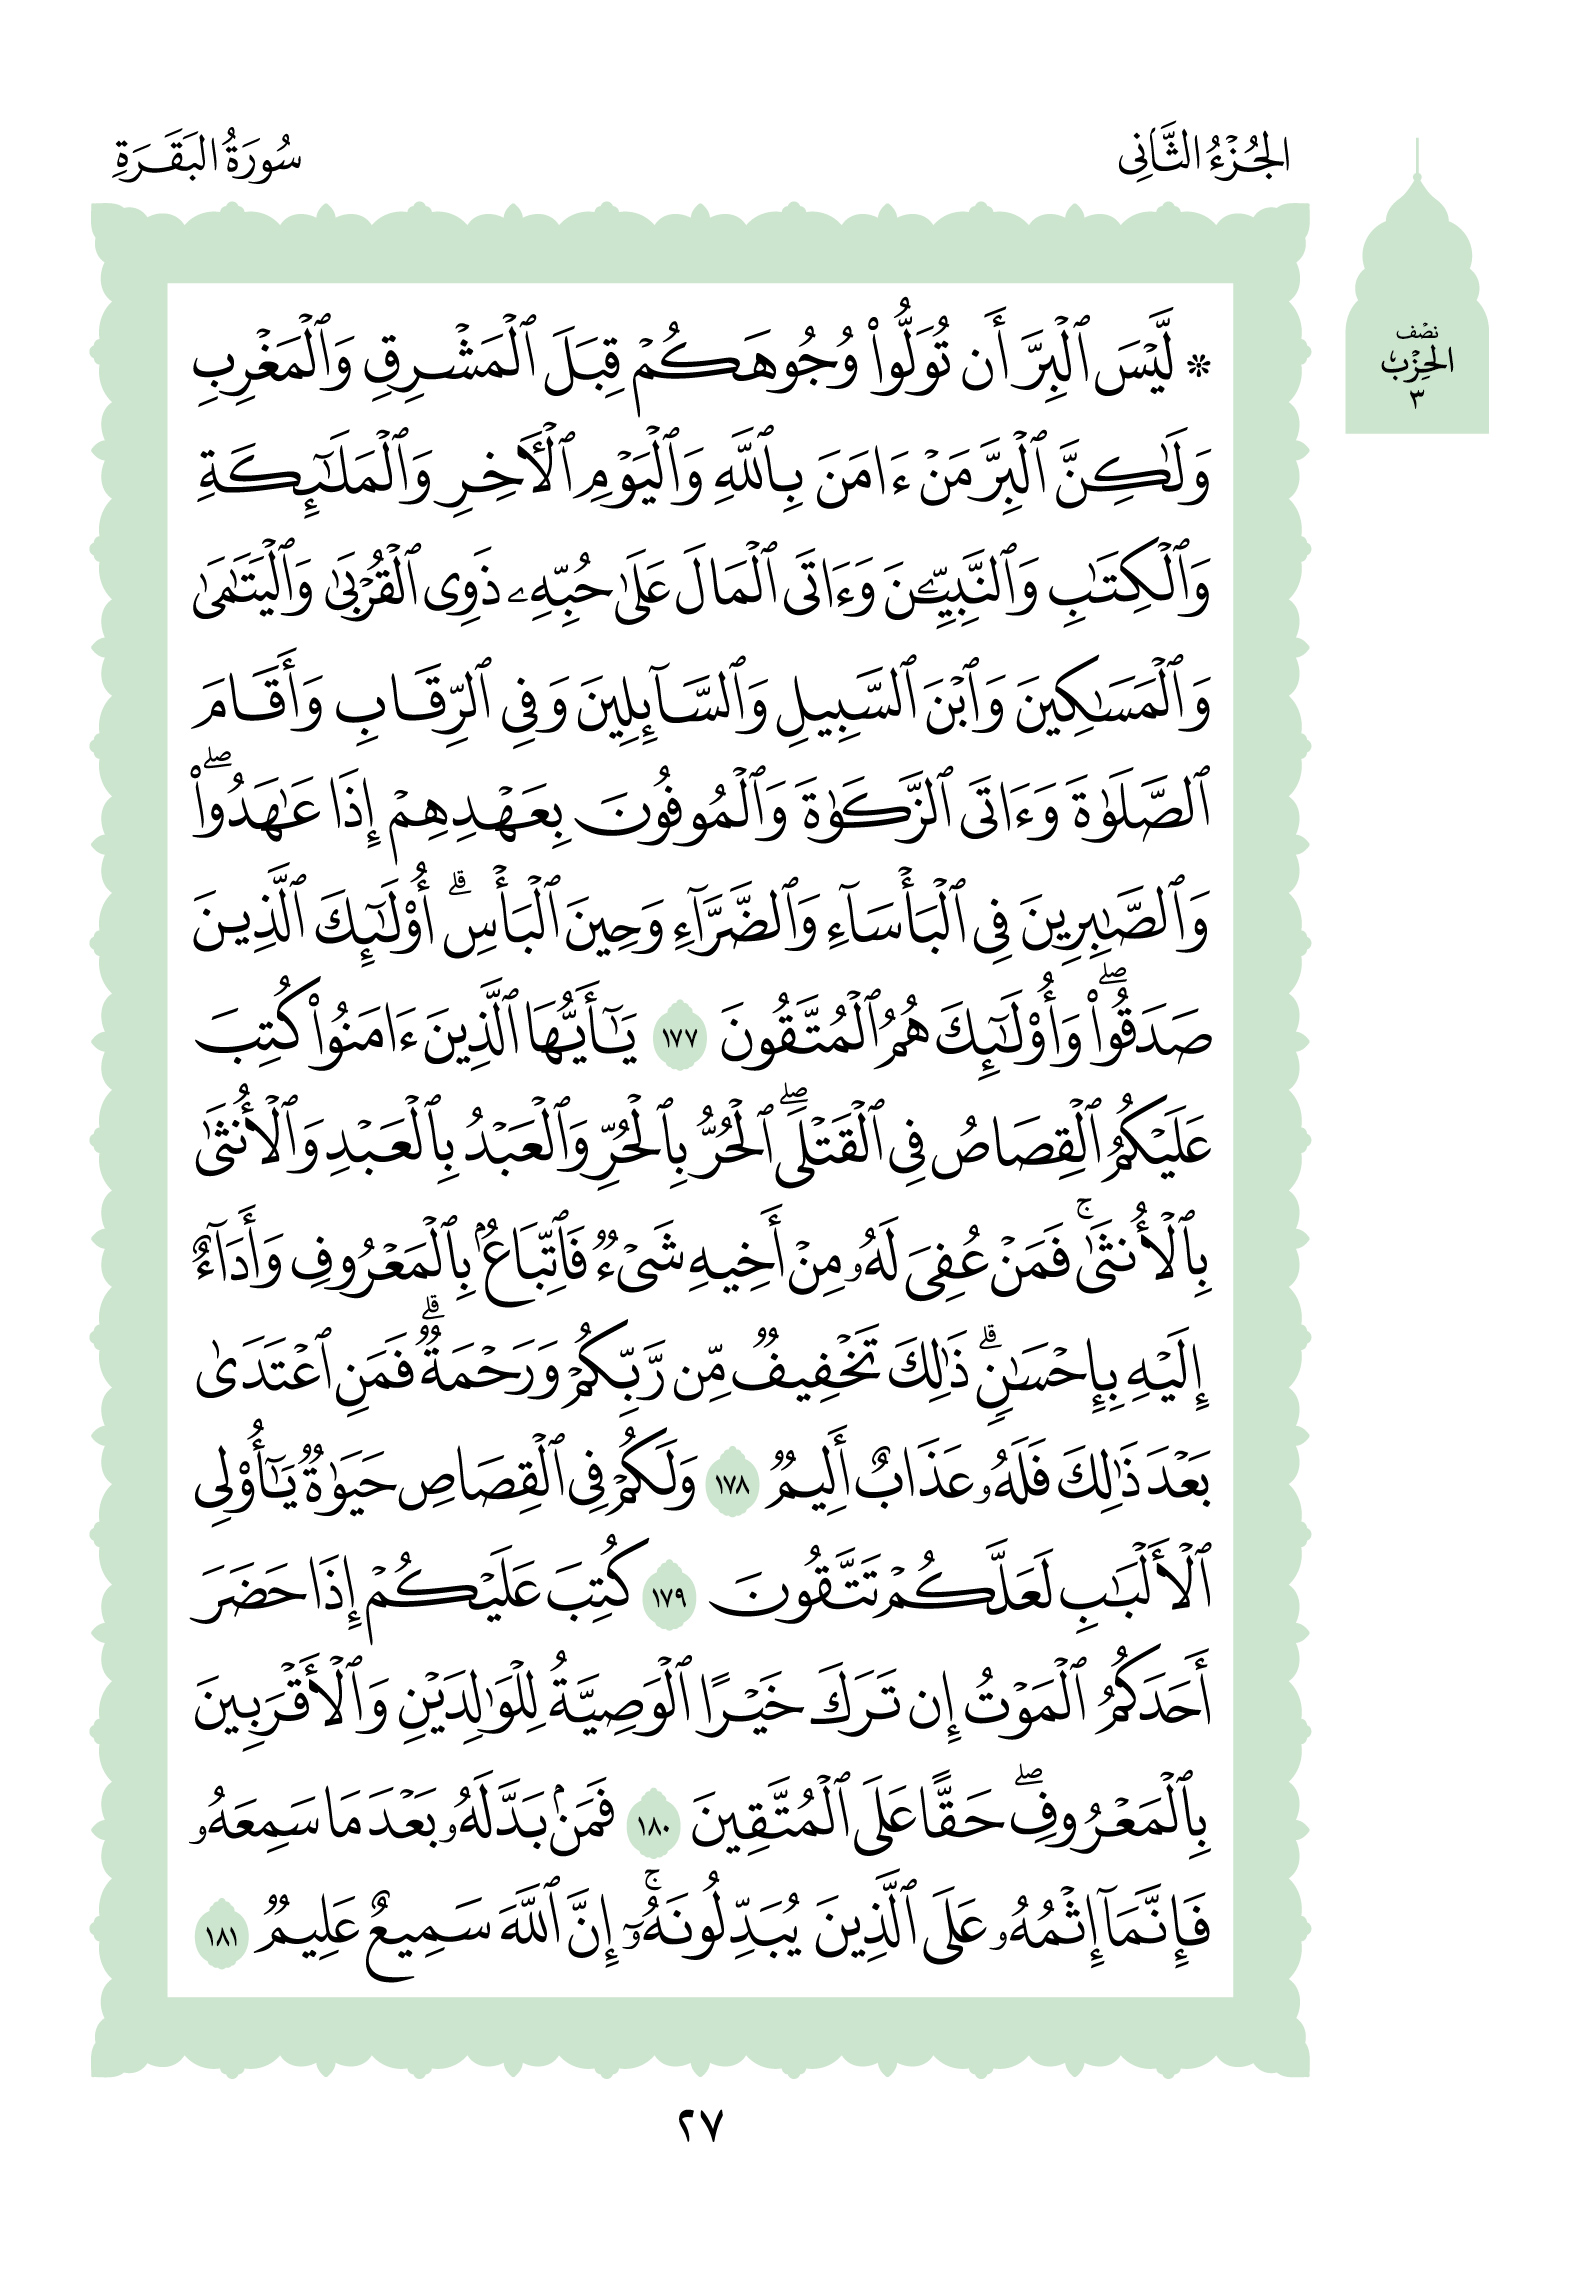 الجُزْءُ الثَّانِي
سُورَةُ البَقَرَةِ
نصف
الحِزْب
٣
۞ لَّيْسَ ٱلْبِرَّ أَن تُوَلُّوا۟ وُجُوهَكُمْ قِبَلَ ٱلْمَشْرِقِ وَٱلْمَغْرِبِ
وَلَـٰكِنَّ ٱلْبِرَّ مَنْ ءَامَنَ بِٱللَّهِ وَٱلْيَوْمِ ٱلْـَٔاخِرِ وَٱلْمَلَـٰٓئِكَةِ
وَٱلْكِتَـٰبِ وَٱلنَّبِيِّـۧنَ وَءَاتَى ٱلْمَالَ عَلَىٰ حُبِّهِۦ ذَوِى ٱلْقُرْبَىٰ وَٱلْيَتَـٰمَىٰ
وَٱلْمَسَـٰكِينَ وَٱبْنَ ٱلسَّبِيلِ وَٱلسَّآئِلِينَ وَفِى ٱلرِّقَابِ وَأَقَامَ
ٱلصَّلَوٰةَ وَءَاتَى ٱلزَّكَوٰةَ وَٱلْمُوفُونَ بِعَهْدِهِمْ إِذَا عَـٰهَدُوا۟ۖ
وَٱلصَّـٰبِرِينَ فِى ٱلْبَأْسَآءِ وَٱلضَّرَّآءِ وَحِينَ ٱلْبَأْسِۗ أُو۟لَـٰٓئِكَ ٱلَّذِينَ
صَدَقُوا۟ۖ وَأُو۟لَـٰٓئِكَ هُمُ ٱلْمُتَّقُونَ ١٧٧ يَـٰٓأَيُّهَا ٱلَّذِينَ ءَامَنُوا۟ كُتِبَ
عَلَيْكُمُ ٱلْقِصَاصُ فِى ٱلْقَتْلَىۖ ٱلْحُرُّ بِٱلْحُرِّ وَٱلْعَبْدُ بِٱلْعَبْدِ وَٱلْأُنثَىٰ
بِٱلْأُنثَىٰۚ فَمَنْ عُفِىَ لَهُۥ مِنْ أَخِيهِ شَىْءٌ فَٱتِّبَاعٌۢ بِٱلْمَعْرُوفِ وَأَدَآءٌ
إِلَيْهِ بِإِحْسَـٰنٍۗ ذَٰلِكَ تَخْفِيفٌ مِّن رَّبِّكُمْ وَرَحْمَةٌۗ فَمَنِ ٱعْتَدَىٰ
بَعْدَ ذَٰلِكَ فَلَهُۥ عَذَابٌ أَلِيمٌ ١٧٨ وَلَكُمْ فِى ٱلْقِصَاصِ حَيَوٰةٌ يَـٰٓأُو۟لِى
ٱلْأَلْبَـٰبِ لَعَلَّكُمْ تَتَّقُونَ ١٧٩ كُتِبَ عَلَيْكُمْ إِذَا حَضَرَ
أَحَدَكُمُ ٱلْمَوْتُ إِن تَرَكَ خَيْرًا ٱلْوَصِيَّةُ لِلْوَٰلِدَيْنِ وَٱلْأَقْرَبِينَ
بِٱلْمَعْرُوفِۖ حَقًّا عَلَى ٱلْمُتَّقِينَ ١٨٠ فَمَنۢ بَدَّلَهُۥ بَعْدَ مَا سَمِعَهُۥ
فَإِنَّمَآ إِثْمُهُۥ عَلَى ٱلَّذِينَ يُبَدِّلُونَهُۥٓۚ إِنَّ ٱللَّهَ سَمِيعٌ عَلِيمٌ ١٨١
٢٧